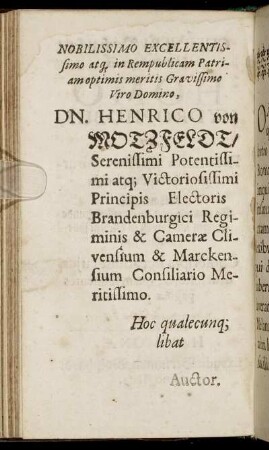 NOBILISSIMO EXCELLENTIS-
simo atq, in Rempublicam Patri-
am optimis meritis Gravissimo
Viro Domino,
DN. HENRICO von
MOTZFELDT/
Serenissimi Potentissi-
mi atq; Victoriosissimi
Principis Electoris
Brandenburgici Regi-
minis & Cameræ Cli-
vensium & Marcken-
sium Consiliario Me-
ritissimo.
Hoc qualecunq;
libat
Auctor.